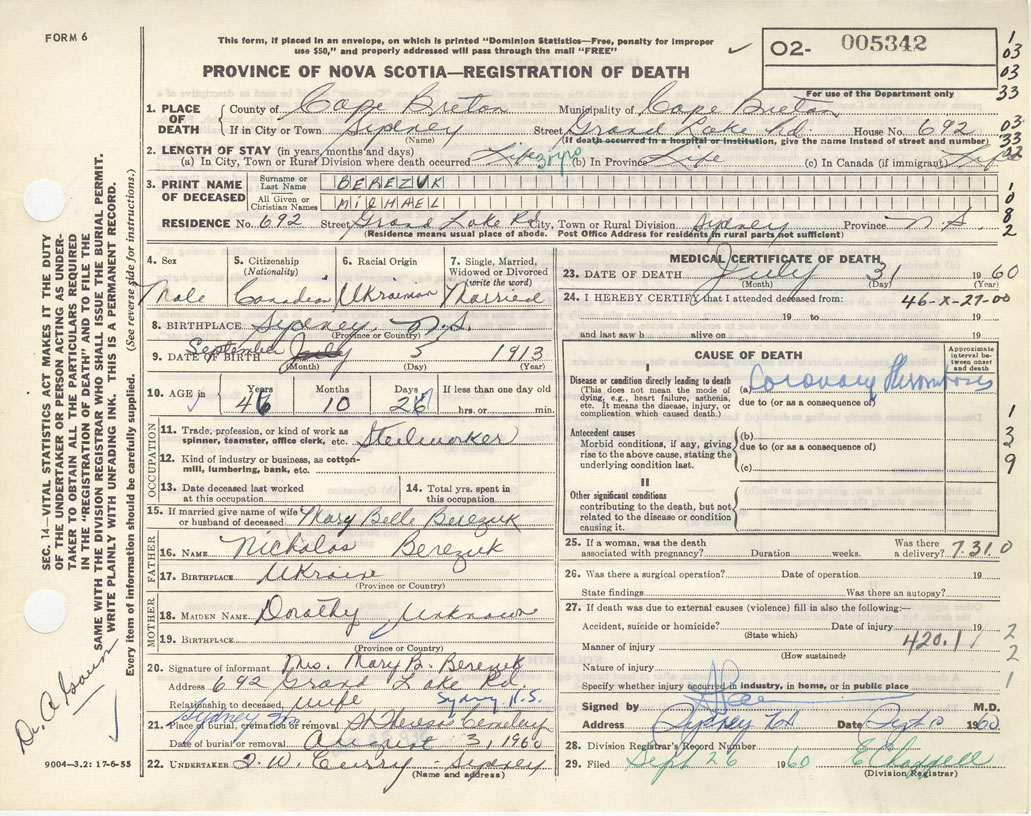 FORM 6
This form, if placed in an envelope, on which is printed "Dominion Statistics—Free, penalty for improper
use $50," and properly addressed will pass through the mail "FREE"
O2- 005342
For use of the Department only
PROVINCE OF NOVA SCOTIA—REGISTRATION OF DEATH
1 03 03 33
1. PLACE OF DEATH
County of Cape Breton Municipality of Cape Breton
If in City or Town Sydney Street Grand Lake Rd. House No. 692
(Name) (If death occurred in a hospital or institution, give the name instead of street and number)
03 33
2. LENGTH OF STAY (in years, months and days)
(a) In City, Town or Rural Division where death occurred Life 30 yrs (b) In Province Life (c) In Canada (if immigrant) Life
3. PRINT NAME OF DECEASED
Surname or Last Name BEREZUK
All Given or Christian Names MICHAEL
1 0 8 2
RESIDENCE No. 692 Street Grand Lake Rd City, Town or Rural Division Sydney Province N S
(Residence means usual place of abode. Post Office Address for residents in rural parts not sufficient)
4. Sex Male
5. Citizenship (Nationality) Canadian
6. Racial Origin Ukrainian
7. Single, Married, Widowed or Divorced (write the word) Married
8. BIRTHPLACE Sydney, N.S.
(Province or Country)
9. DATE OF BIRTH September July 5 1913
(Month) (Day) (Year)
10. AGE in Years 46 Months 10 Days 26 If less than one day old
hrs. or min.
OCCUPATION
11. Trade, profession, or kind of work as
spinner, teamster, office clerk, etc. Steelworker
12. Kind of industry or business, as cotton-
mill, lumbering, bank, etc.
13. Date deceased last worked
at this occupation
14. Total yrs. spent in
this occupation
15. If married give name of wife
or husband of deceased Mary Belle Berezuk
FATHER
16. NAME Nicholas Berezuk
17. BIRTHPLACE Ukraine
(Province or Country)
MOTHER
18. MAIDEN NAME Dorothy Unknown
19. BIRTHPLACE
(Province or Country)
20. Signature of informant Mrs. Mary B. Berezuk
Address 692 Grand Lake Rd.
Relationship to deceased wife Sydney N.S.
21. Place of burial, cremation or removal St Theresa Cemetery
Sydney
Date of burial or removal August 3, 1960
22. UNDERTAKER Curry - Sydney
(Name and address)
MEDICAL CERTIFICATE OF DEATH
23. DATE OF DEATH July 31 1960
(Month) (Day) (Year)
24. I HEREBY CERTIFY that I attended deceased from: 46-X-27-00
19 to 19
and last saw h alive on 19
CAUSE OF DEATH
Approximate interval between onset and death
I
Disease or condition directly leading to death
(This does not mean the mode of
dying, e.g., heart failure, asthenia,
etc. It means the disease, injury, or
complication which caused death.)
(a) Coronary Thrombosis
due to (or as a consequence of)
Antecedent causes
Morbid conditions, if any, giving
rise to the above cause, stating the
underlying condition last.
(b)
due to (or as a consequence of)
(c)
1 3 2 9
II
Other significant conditions
contributing to the death, but not
related to the disease or condition
causing it.
25. If a woman, was the death
associated with pregnancy? Duration weeks. Was there
a delivery? 7.31.0
26. Was there a surgical operation? Date of operation 19
State findings Was there an autopsy?
27. If death was due to external causes (violence) fill in also the following:—
Accident, suicide or homicide? Date of injury 19
(State which) 420.1
Manner of injury
(How sustained)
2 2
Nature of injury
Specify whether injury occurred in industry, in home, or in public place
Signed by M.D.
Address Sydney NS Date Sept 10 1960
28. Division Registrar's Record Number
29. Filed Sept 26 1960
(Division Registrar)
SEC. 14—VITAL STATISTICS ACT MAKES IT THE DUTY
OF THE UNDERTAKER OR PERSON ACTING AS UNDER-
TAKER TO OBTAIN ALL THE PARTICULARS REQUIRED
IN THE "REGISTRATION OF DEATH" AND TO FILE THE
SAME WITH THE DIVISION REGISTRAR WHO SHALL ISSUE THE BURIAL PERMIT.
WRITE PLAINLY WITH UNFADING INK. THIS IS A PERMANENT RECORD.
Every item of information should be carefully supplied. (See reverse side for instructions.)
Dr. A
9004—3.2: 17-6-55